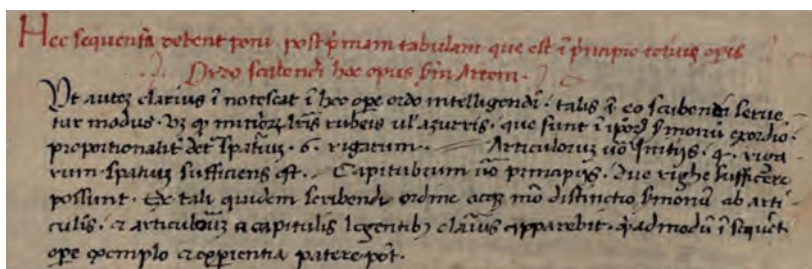 Hec sequentia debent poni post p̄mam tabulam que est ī p̄ncipio totius opis
Ordo scribendi hoc opus scd̄m Artem.
Vt autez clarius ī notescat ī hoc ope ordo intelligendi. talis ī eo scribendi serue
tur modus. Vz qp litt̄is rubeis ul' azurris. que sunt ī sermonū exordio.
proportionalit' det' spatiuz. 6. rigarum. Articulorum ūo Initijs. 4. riga
rum spatiuz sufficiens est. Capitulorum ūo principijs. Due righe sufficere
possunt. Ex tali quidem scribendi ordine atqz mō distinctio sermonū ab arti
culis. et articulorū a capitulis legentibz clarius apparebit. q̄admodū ī sequēti
ope exemplo et experientia patere pōt.